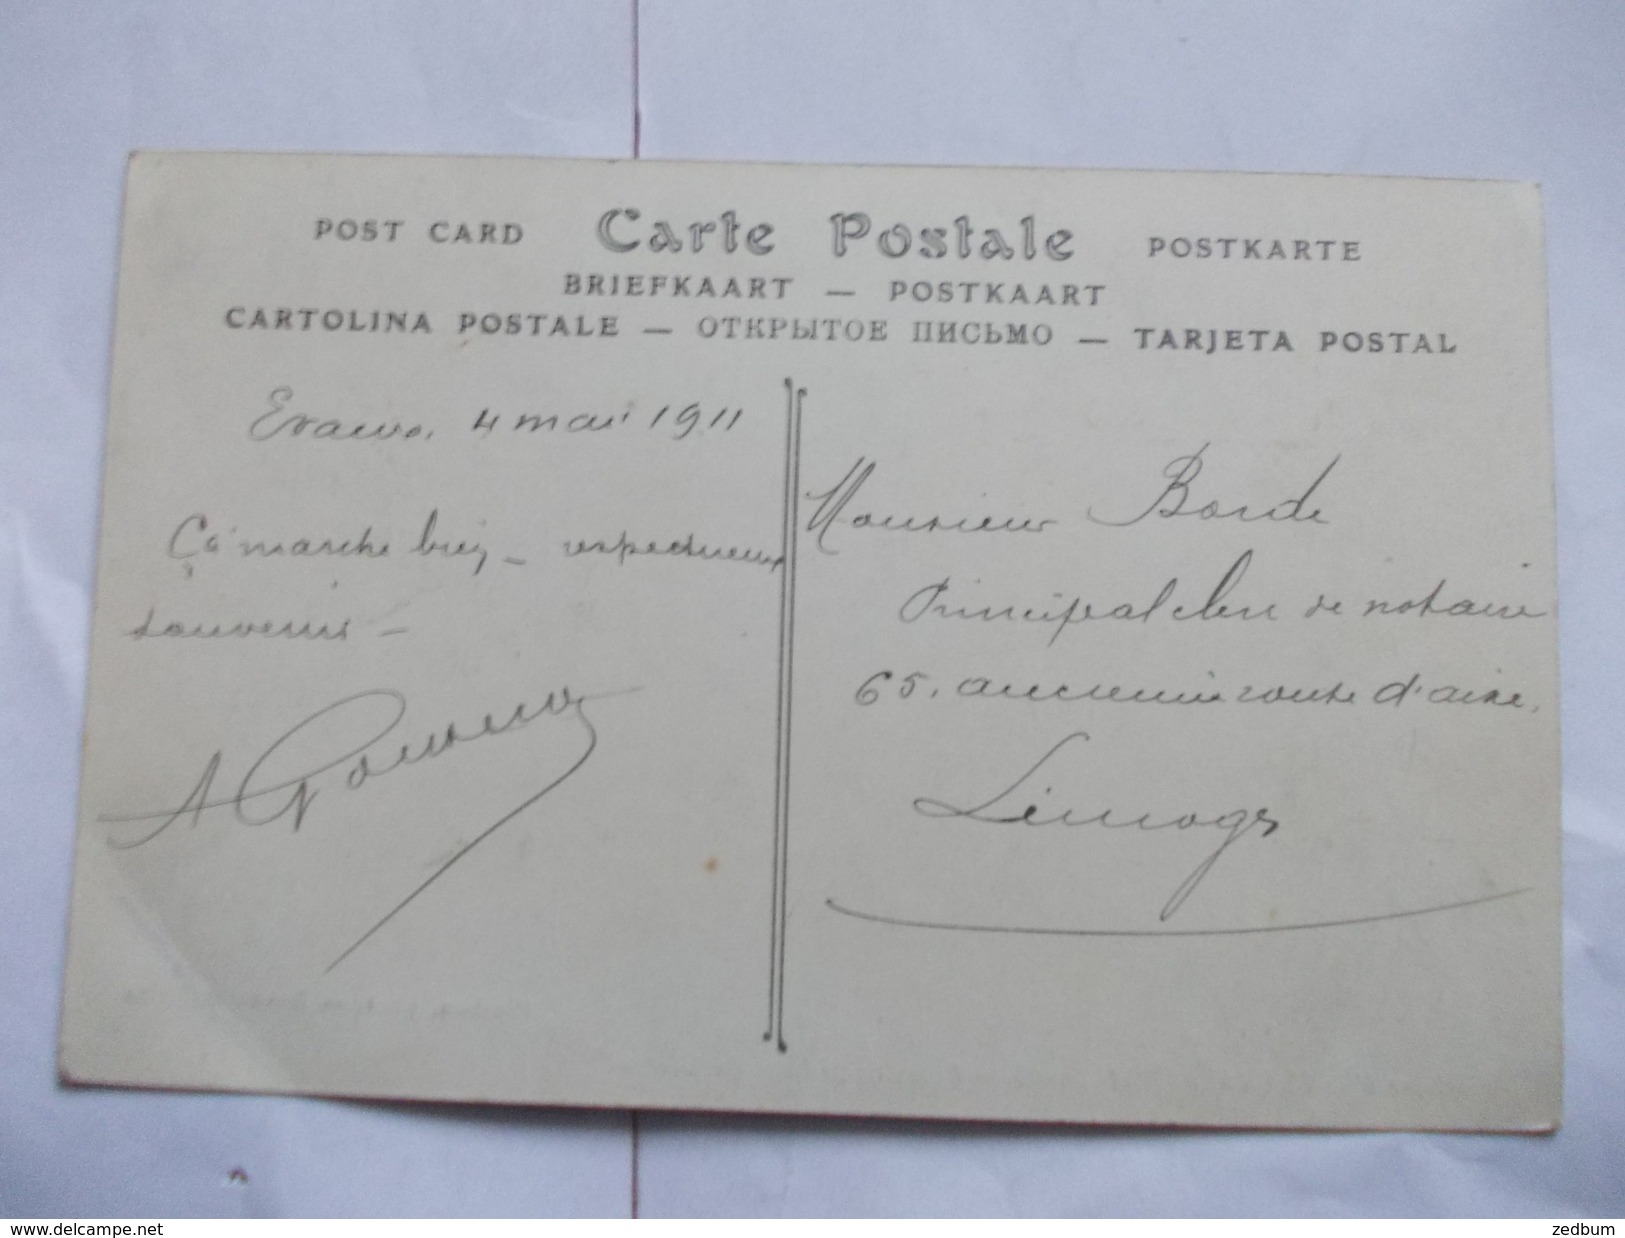 POST CARD Carte Postale POSTKARTE
BRIEFKAART — POSTKAART
CARTOLINA POSTALE — ОТКРЫТОЕ ПИСЬМО — TARJETA POSTAL
4 mai 1911
Ça marche bien — respectueux
souvenir —
Monsieur Borde
Principal clerc de notaire
65, ancienne route d'aixe,
Limoges
www.delcampe.net
zedbum